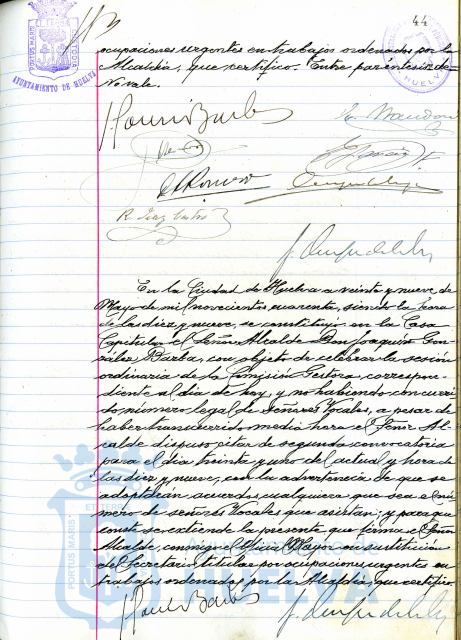 44
PORTUS MARIS
CUSTODIA
AYUNTAMIENTO DE HUELVA
HUELVA
ocupaciones urgentes en trabajos ordenados por la
Alcaldía, que certifico. Entre paréntesis de=
No vale.
En la Ciudad de Huelva a veinte y nueve de
Mayo de mil novecientos cuarenta, siendo la hora
de las diez y nueve, se constituyó en la Casa
Capitular el Señor Alcalde Don Joaquín Gon-
zález Barba, con objeto de celebrar la sesión
ordinaria de la Comisión Gestora, correspon-
diente al día de hoy, y no habiendo concurri-
do número legal de Señores Vocales, a pesar de
haber transcurrido media hora el Señor Al-
calde dispuso citar de segunda convocatoria
para el día treinta y uno del actual y hora de
las diez y nueve, con la advertencia de que se
adoptarán acuerdos cualquiera que sea el nú-
mero de señores Vocales que asistan; y para que
conste se extiende la presente que firma el Señor
Alcalde, conmigo el Oficial Mayor en sustitución
del Secretario titular por ocupaciones urgentes en
trabajos ordenados por la Alcaldía, que certifico.
PORTUS MARIS
Ayuntamiento de
HUELVA